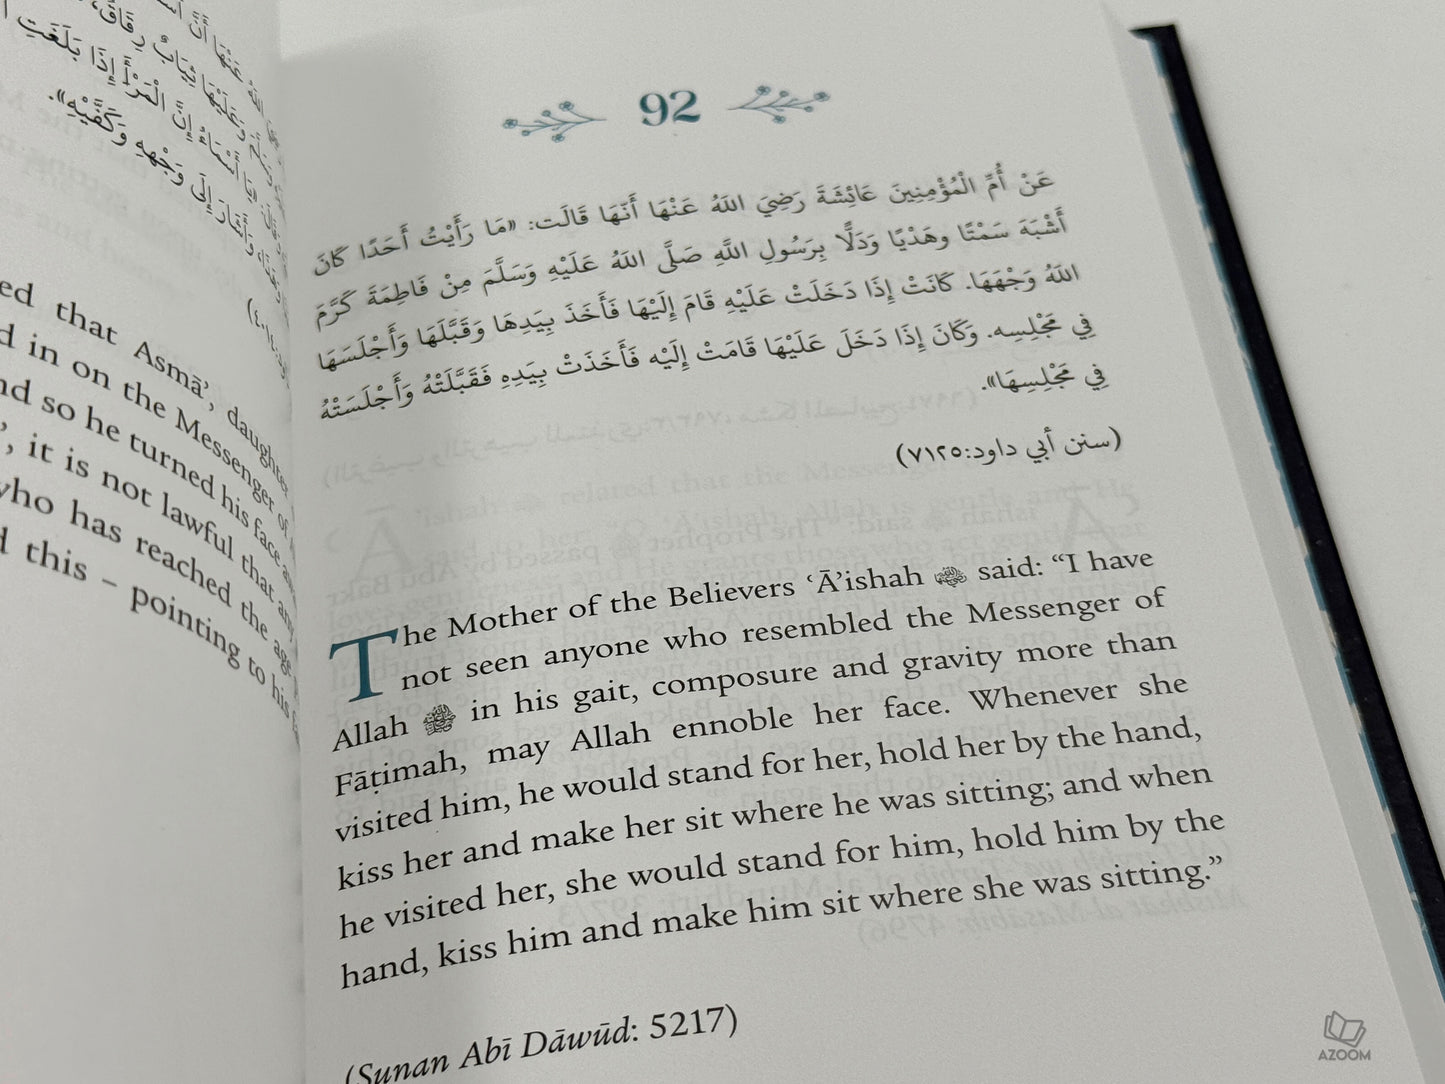 اللهُ عَنْهَا أَنَّ
وَعَلَيْهَا ثِيَابٌ رِقَاقٌ،
«يَا أَسْمَاءُ إِنَّ الْمَرْأَ إِذَا بَلَغَتِ
وَأَشَارَ إِلَى وَجْهِهِ وَكَفَّيْهِ».
ed that Asmā’, daughter
d in on the Messenger of
nd so he turned his face
’, it is not lawful that any
who has reached the age
d this – pointing to his
92
عَنْ أُمِّ الْمُؤْمِنِينَ عَائِشَةَ رَضِيَ اللهُ عَنْهَا أَنَّهَا قَالَت: «مَا رَأَيْتُ أَحَدًا كَانَ
أَشْبَهَ سَمْتًا وهَدْيًا وَدَلًّا بِرَسُولِ اللَّهِ صَلَّى اللهُ عَلَيْهِ وَسَلَّمَ مِنْ فَاطِمَةَ كَرَّمَ
اللهُ وَجْهَهَا. كَانَتْ إِذَا دَخَلَتْ عَلَيْهِ قَامَ إِلَيْهَا فَأَخَذَ بِيَدِهَا وَقَبَّلَهَا وَأَجْلَسَهَا
فِي مَجْلِسِه. وَكَانَ إِذَا دَخَلَ عَلَيْهَا قَامَتْ إِلَيْه فَأَخَذَتْ بِيَدِهِ فَقَبَّلَتْهُ وَأَجْلَسَتْهُ
فِي مَجْلِسِهَا».
(سنن أبي داود:٧١٢٥)
The Mother of the Believers ‘Ā’ishah said: “I have
not seen anyone who resembled the Messenger of
Allah ﷺ in his gait, composure and gravity more than
Fāṭimah, may Allah ennoble her face. Whenever she
visited him, he would stand for her, hold her by the hand,
kiss her and make her sit where he was sitting; and when
he visited her, she would stand for him, hold him by the
hand, kiss him and make him sit where she was sitting.”
(Sunan Abī Dāwūd: 5217)
AZOOM